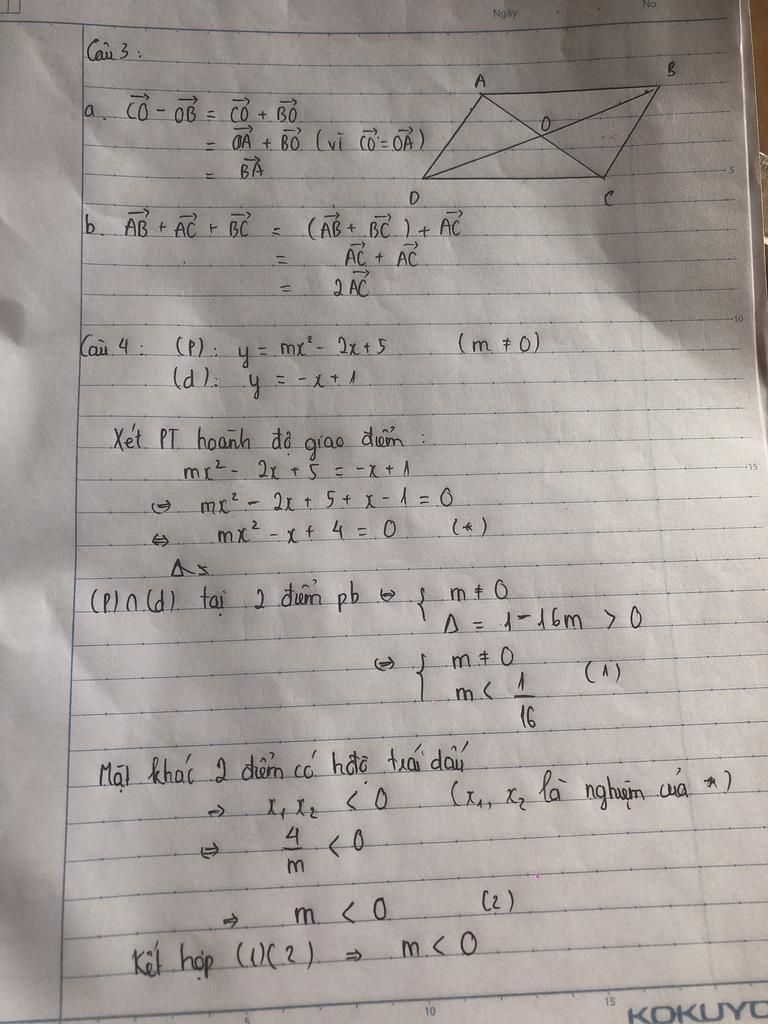 Ngày
No.
Câu 3 :
A
B
O
D
C
a. $\overrightarrow{CO} - \overrightarrow{OB} = \overrightarrow{CO} + \overrightarrow{BO}$
$= \overrightarrow{OA} + \overrightarrow{BO}$ (vì $\overrightarrow{CO} = \overrightarrow{OA}$)
$= \overrightarrow{BA}$
5
b. $\overrightarrow{AB} + \overrightarrow{AC} + \overrightarrow{BC} = (\overrightarrow{AB} + \overrightarrow{BC}) + \overrightarrow{AC}$
$= \overrightarrow{AC} + \overrightarrow{AC}$
$= 2\overrightarrow{AC}$
10
Câu 4 : (P): y = mx² - 2x + 5 (m ≠ 0)
(d): y = -x + 1
Xét PT hoành độ giao điểm :
mx² - 2x + 5 = -x + 1
15
⇔ mx² - 2x + 5 + x - 1 = 0
⇔ mx² - x + 4 = 0 (*)
(P)∩(d) tại 2 điểm pb ⇔ { m ≠ 0
Δ = 1 - 16m > 0
⇔ { m ≠ 0
m < 1/16 (1)
Mặt khác 2 điểm có hđộ trái dấu
⇒ x₁x₂ < 0 (x₁, x₂ là nghiệm của *)
⇔ 4/m < 0
⇒ m < 0 (2)
Kết hợp (1)(2) ⇒ m < 0
5
10
15
KOKUYO